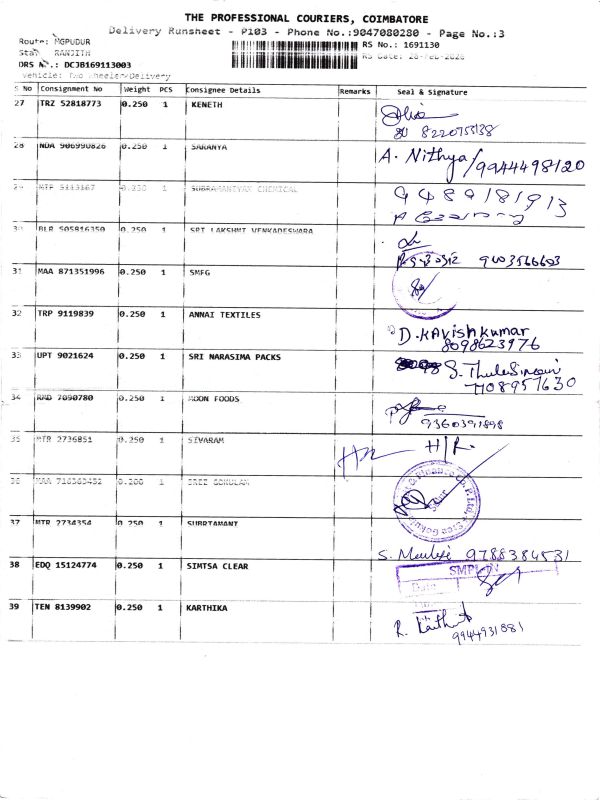 THE PROFESSIONAL COURIERS, COIMBATORE
Delivery Runsheet - P103 - Phone No.:9047080280 - Page No.:3
Route: MGPUDUR
RS No.: 1691130
Staf RANJITH
RS Date: 28-Feb-2026
DRS No.: DCJB169113003
Vehicle: Two Wheeler/Delivery
S No Consignment No Weight PCS Consignee Details Remarks Seal & Signature
27 TRZ 52818773 0.250 1 KENETH
8220753138
28 NDA 906990826 0.250 1 SARANYA
A. Nithya/9944498120
29 MTP 5113167 0.250 1 SUBRAMANIYAN CHEMICAL
9489181913
30 BLR 505816350 0.250 1 SRI LAKSHMI VENKADESWARA
9403566603
31 MAA 871351996 0.250 1 SMFG
32 TRP 9119839 0.250 1 ANNAI TEXTILES
D. KAVishkumar
8098623976
33 UPT 9021624 0.250 1 SRI NARASIMA PACKS
7708957630
34 RMD 7090780 0.250 1 MOON FOODS
9360391898
35 MTR 2736851 0.250 1 SIVARAM
H/R.
36 MAA 716363452 0.200 1 SREE GOKULAM
37 MTR 2734354 0.250 1 SUBRTAMANT
9788384531
38 EDQ 15124774 0.250 1 SIMTSA CLEAR
39 TEN 8139902 0.250 1 KARTHIKA
R.
9944931881